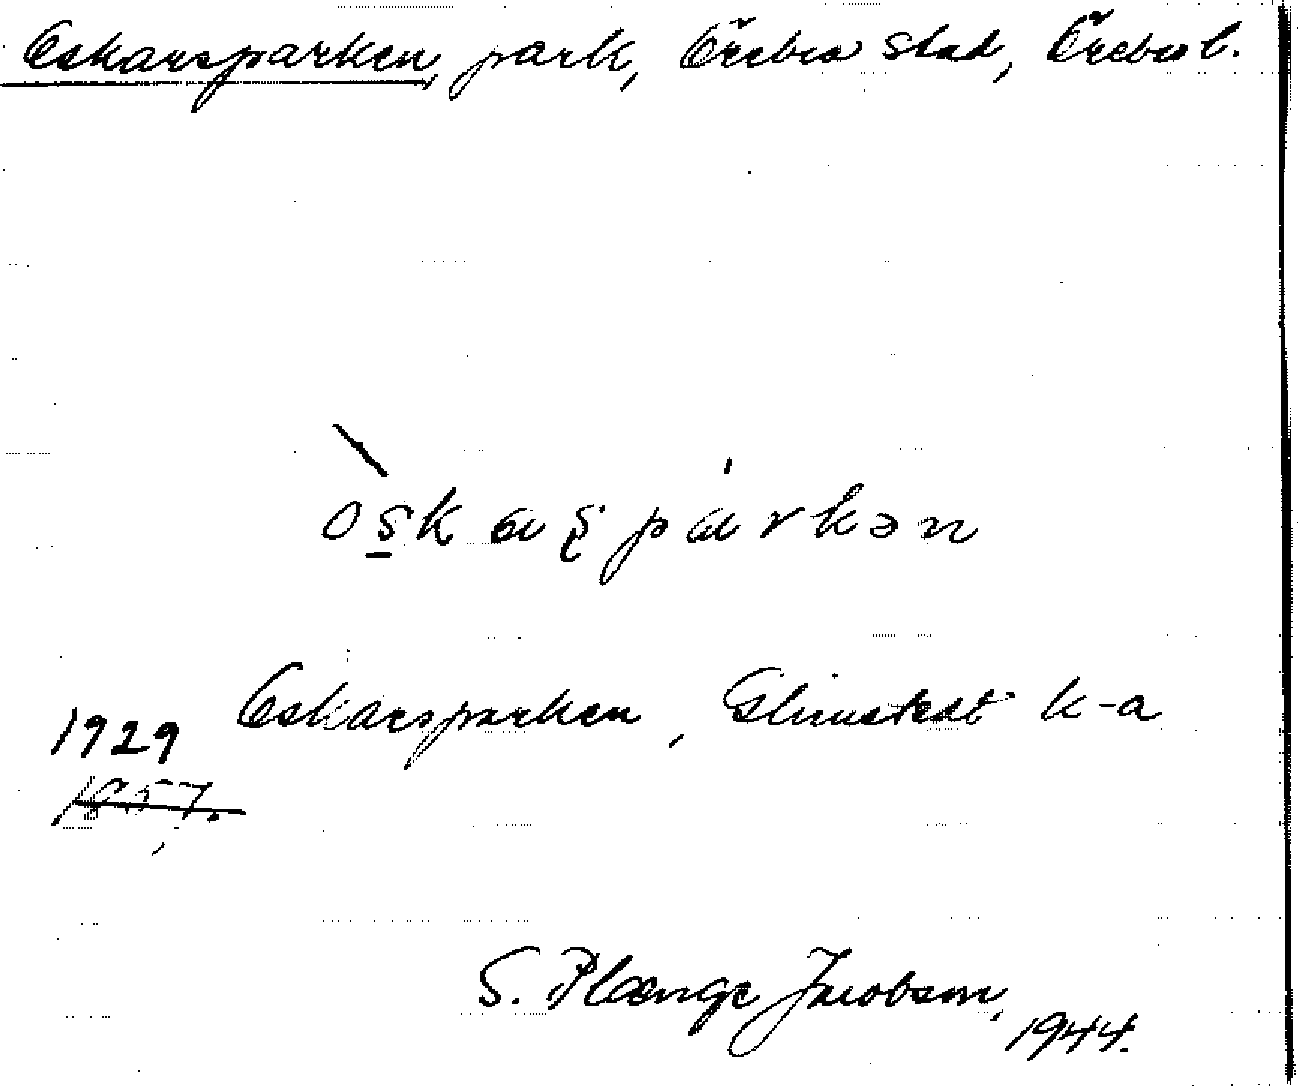 Oskarsparken, park, Örebro stad, Örebro l.
òskaʂpárkən
1929 Oskarsparken, Glimstedt k-a
1857.
S. Plænge Jacobson,
1944.